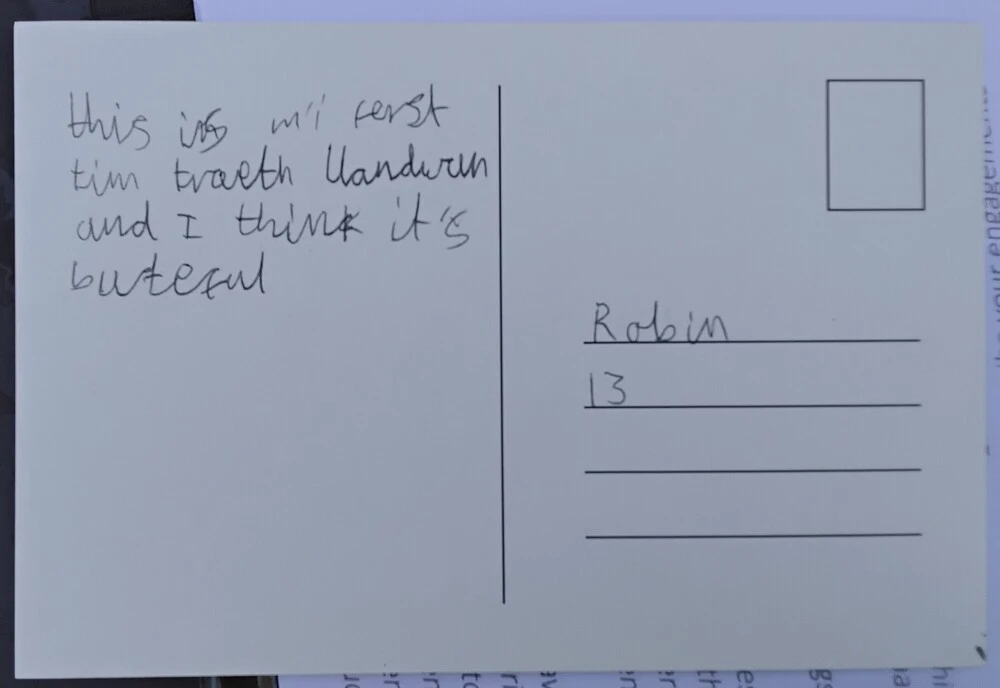 this is m'i ferst
tim traeth llandwrn
and I think it's
buteful
Robin
13
your engagements